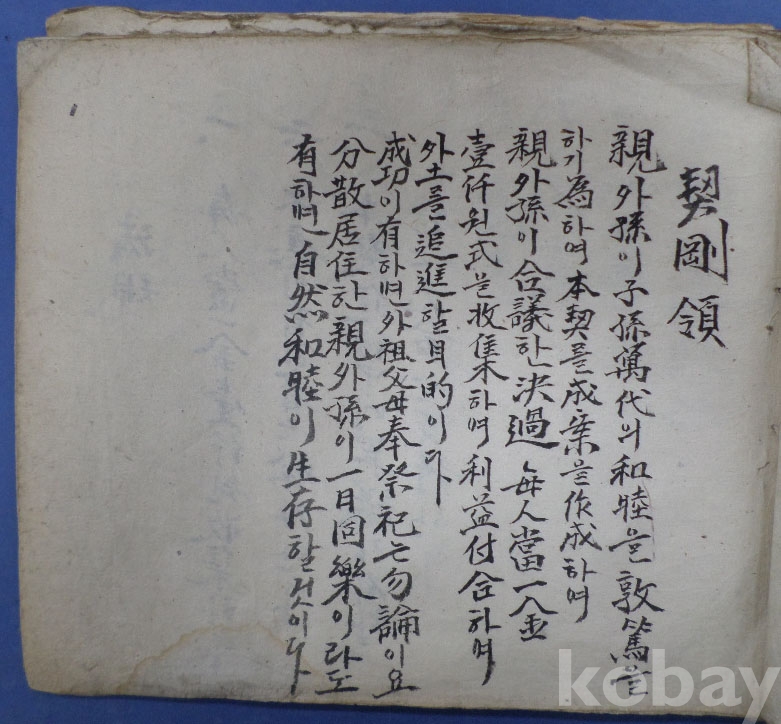 契剛領
親外孫이子孫萬代의和睦을敦篤을
하기爲하여本契를成案을作成하여
親外孫이合議한決過每人當一入金
壹仟원式을收集하여利益付合하여
外土를追進할目的이다
成功이有하면外祖父母奉祭祀는勿論이요
分散居住한親外孫이一日同樂이라도
有하면自然和睦이生存할것이다
kobay